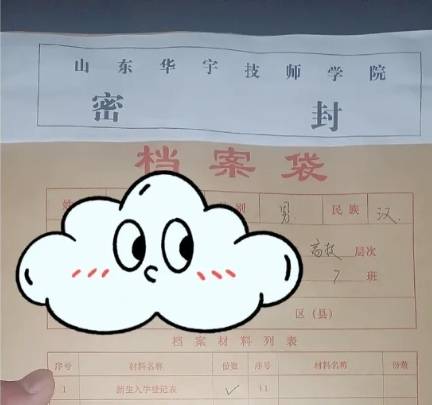 山东华宇技师学院
密封
档案袋
姓 别 男 民族 汉
高技 层次
7 班
区(县)
档案材料列表
序号 材料名称 份数 序号 材料名称 份数
1 新生入学登记表 ✓ 11